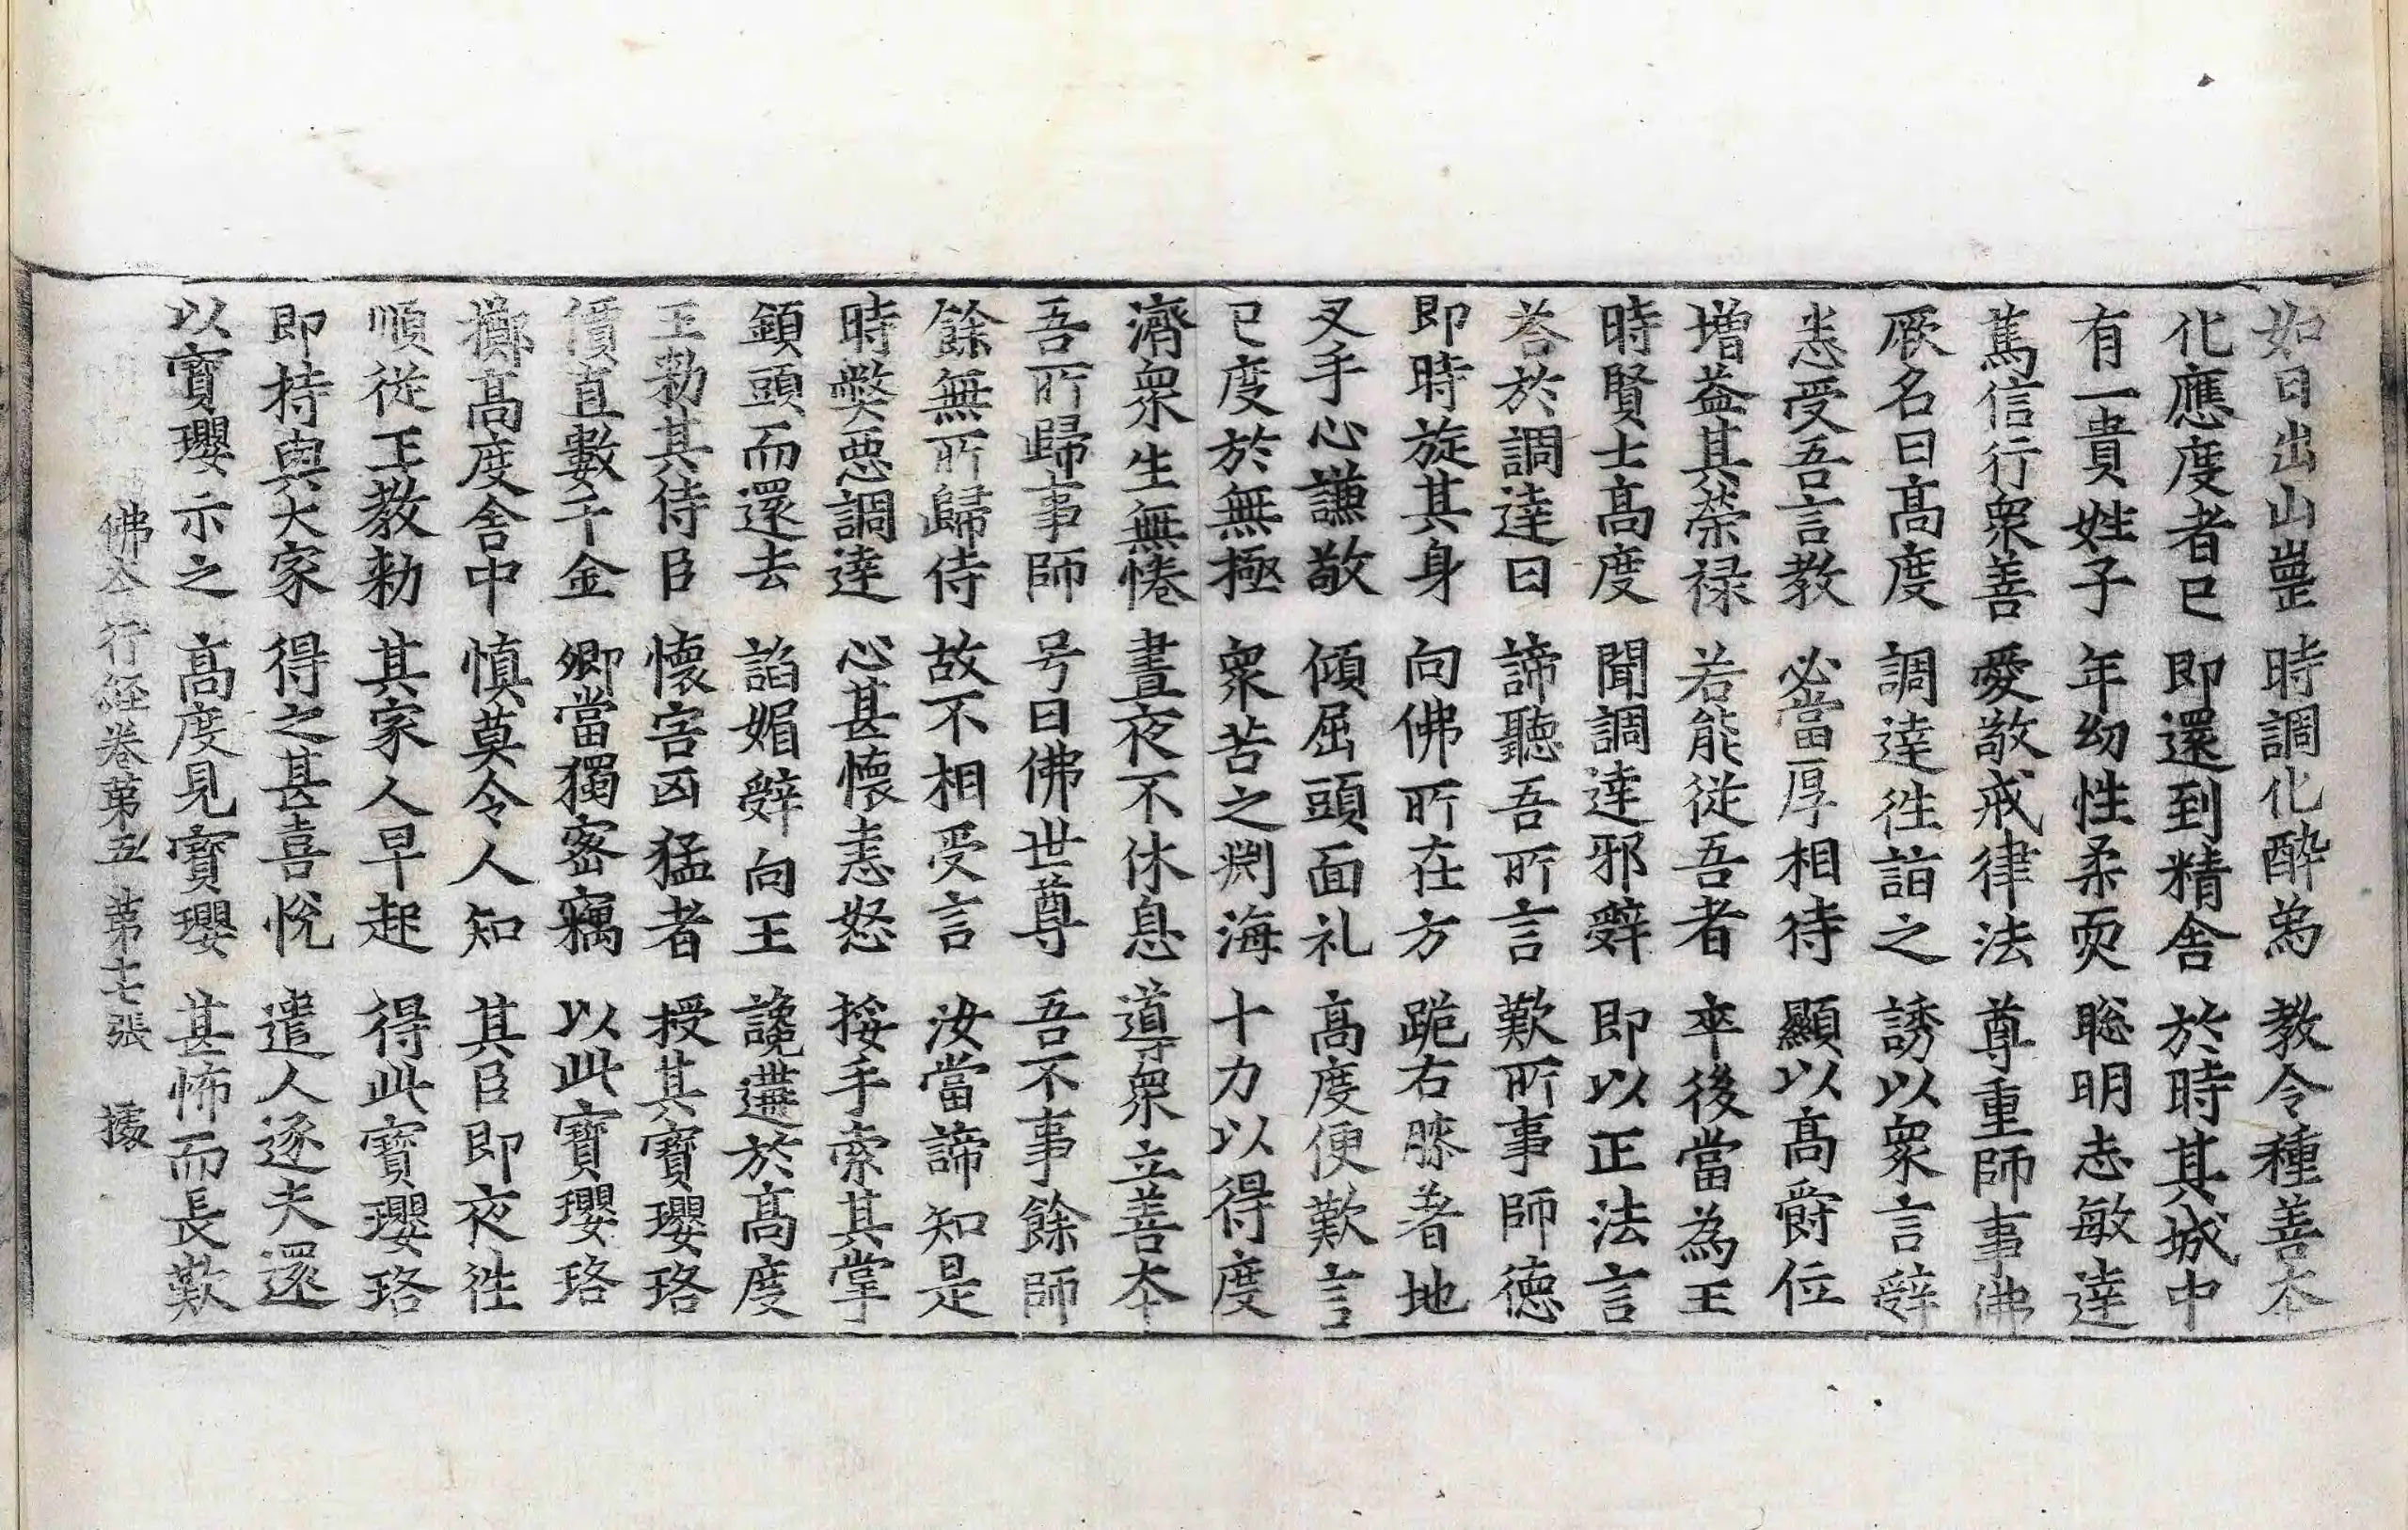 如日出山崗　時調化酔為　教令種善夲
化應度者已　即還到精舎　於時其城中
有一貴姓子　年幼性柔耎　聡明志敏達
篤信行衆善　愛敬戒律法　尊重師事佛
厥名曰髙度　調達徃詣之　誘以衆言辝
悉受吾言教　必當厚相待　顯以髙爵位
増益其榮禄　若能從吾者　卒後當為王
時賢士髙度　聞調達邪辝　即以正法言
荅於調達曰　諦聽吾所言　歎所事師德
即時旋其身　向佛所在方　跪右膝著地
叉手心謙敬　傾屈頭面礼　髙度便歎言
已度於無極　衆苦之渕海　十力以得度
濟衆生無惓　晝夜不休息　道導衆立善夲
吾所歸事師　号曰佛世尊　吾不事餘師
餘無所歸侍　故不相受言　汝當諦知是
時弊惡調達　心甚懷恚怒　挼手索其掌
鎮頭而還去　諂媚辝向王　讒遘於髙度
王勑其侍臣　懷害凶猛者　授其寶瓔珞
價直數千金　卿當獨宻竊　以此寶瓔珞
擲髙度舎中　慎莫令人知　其臣即夜徃
順從王教勑　其家人早起　得此寶瓔珞
即持與大家　得之甚喜悅　遣人逐夫還
以寶瓔示之　髙度見寶瓔　甚怖而長歎
佛夲行經卷第五　第七張　據